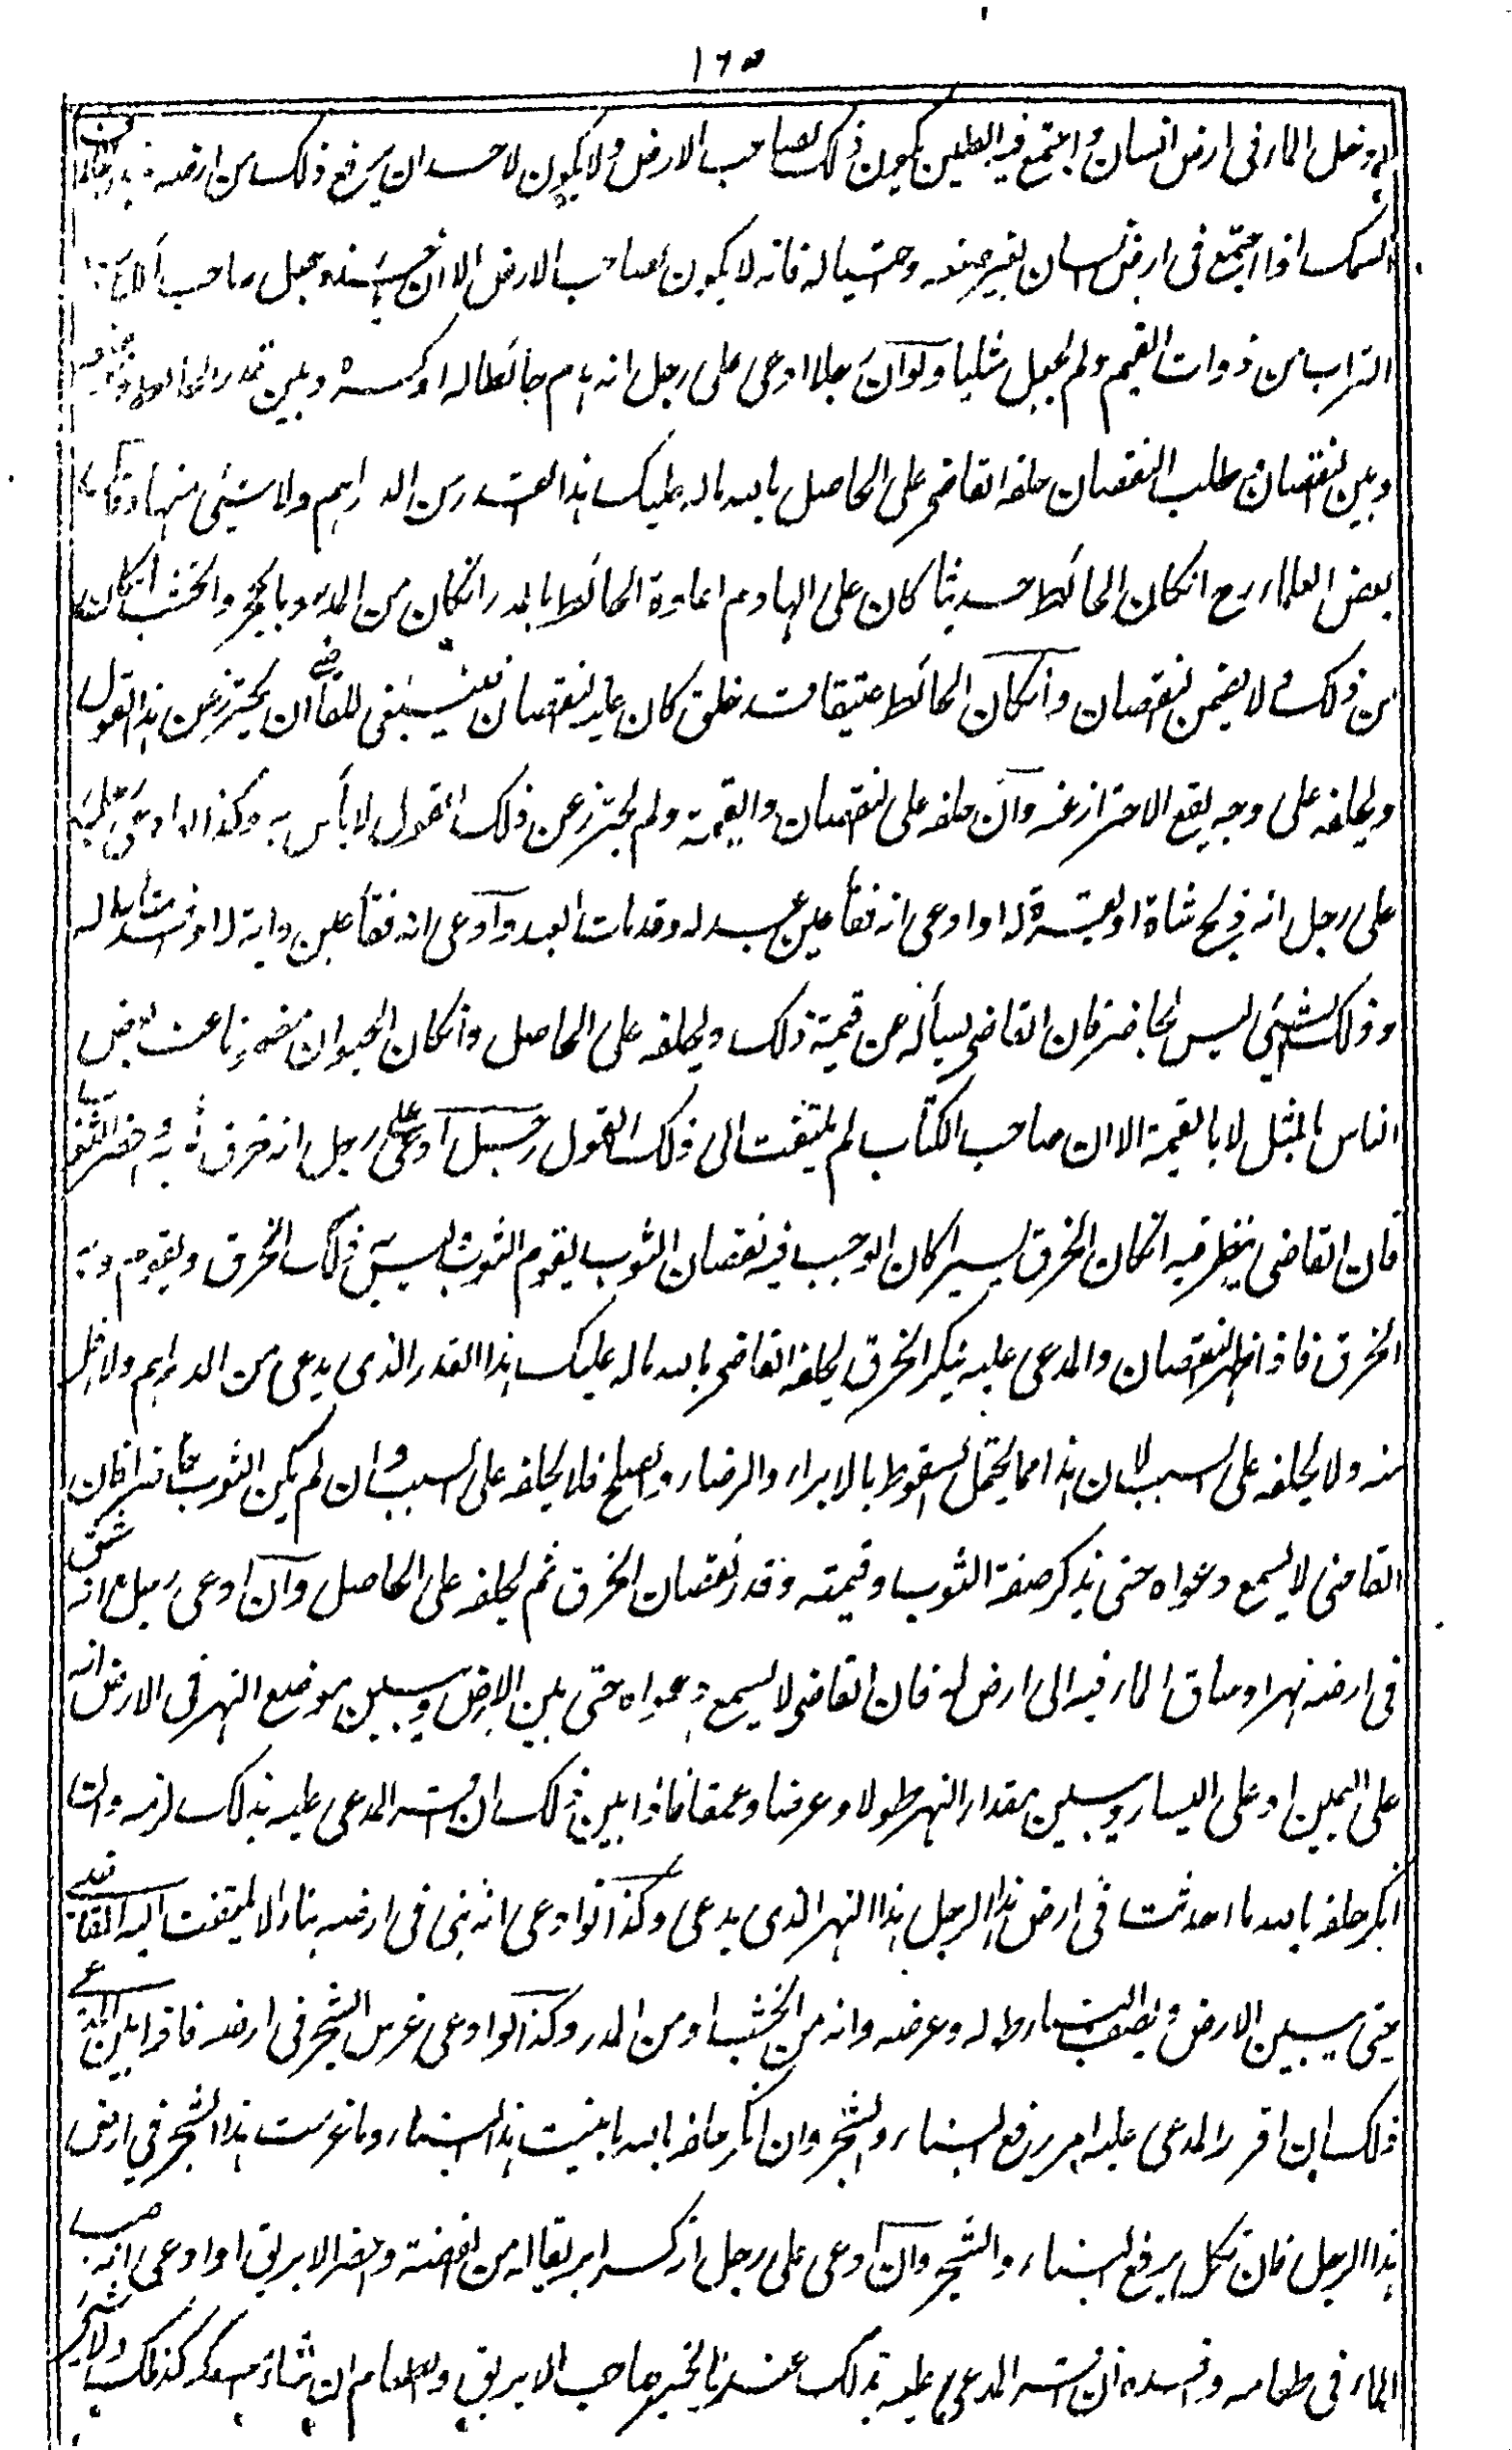 ١٦٥
لو دخل الماء فى ارض انسان واجتمع فيه الطين يكون ذلك لصاحب الارض ولا يكون لاحد ان يرفع ذلك من ارضه
السمك اذا اجتمع فى ارض انسان بغير صنعه واحتياله فانه لا يكون لصاحب الارض الا ان وجعل صاحب
التراب من ذوات القيم ولم يجعل مثليا ولو ان رجلا ادعى على رجل انه هدم حائطا له او كسره وبين قدر الحائط وموضعه
وبين النقصان وطلب النقصان حلفه القاضى على الحاصل بالله ماله عليك هذا القدر من الدراهم ولا شيئ منها وقال
بعض العلماء رح انكان الحائط حديثا كان على الهادم اعادة الحائط بالمدر انكان من المدر وبالحجر والخشب انكان
من ذلك ولا يضمن النقصان وانكان الحائط عتيقا قد خلق كان عليه النقصان فينبغى للقاضى ان يحترز عن هذا القول
ويحلفه على وجه يقع الاحتراز عنه وان حلفه على النقصان والقيمة ولم يحترز عن ذلك القول لا بأس به وكذا لو ادعى رجل
على رجل انه ذبح شاة او بقرة له او ادعى انه فقأ عين عبد له وقد مات العبد او ادعى انه فقأ عين دابة له او فسد متاعا له
وذلك الشيئ ليس بحاضر فان القاضى يسأله عن قيمة ذلك ويحلفه على الحاصل وانكان الحيوان مضمونا عند بعض
الناس بالمثل لا بالقيمة الا ان صاحب الكتاب لم يلتفت الى ذلك القول رجل ادعى على رجل انه خرق ثوبه واحضر الثوب
فان القاضى ينظر فيه انكان الخرق يسيرا كان الواجب فيه نقصان الثوب يقوم الثوب ليس ذلك الخرق ويقوم وبه
الخرق فاذا ظهر النقصان والمدعى عليه ينكر الخرق يحلفه القاضى بالله ماله عليك هذا القدر الذى يدعى من الدراهم ولا اقل
منه ولا يحلفه على السبب لان هذا مما يحتمل السقوط بالابراء والرضاء والصلح فلا يحلفه على السبب وان لم يكن الثوب حاضرا فان
القاضى لا يسمع دعواه حتى يذكر صفة الثوب وقيمته وقدر نقصان الخرق ثم يحلفه على الحاصل وان ادعى رجل انه شق
فى ارضه نهرا وساق الماء فيه الى ارض له فان القاضى لا يسمع دعواه حتى يبين الارض ويبين موضع النهر فى الارض انه
على اليمين او على اليسار ويبين مقدار النهر طولا وعرضا وعمقا فاذا بين ذلك ان اقر المدعى عليه بذلك لزمه وان
انكر حلفه بالله ما احدثت فى ارض هذا الرجل هذا النهر الذى يدعى وكذا لو ادعى انه بنى فى ارضه بناء لا يلتفت اليه القاضى
حتى يبين الارض ويصف البناء وطوله وعرضه وانه من الخشب او من المدر وكذا لو ادعى غرس الشجر فى ارضه فاذا بين المدعى
ذلك ان اقر المدعى عليه امر برفع البناء والشجر وان انكر حلفه بالله ما بنيت هذا البناء وما غرست هذا الشجر فى ارض
هذا الرجل فان نكل يرفع البناء والشجر وان ادعى على رجل انه كسر ابريقا له من الفضة واحضر الابريق او ادعى انه صب
الماء فى طعامه وافسده ان اقر المدعى عليه بذلك عندنا يخير صاحب الابريق والطعام ان شاء امسكه كذلك ولا شيئ